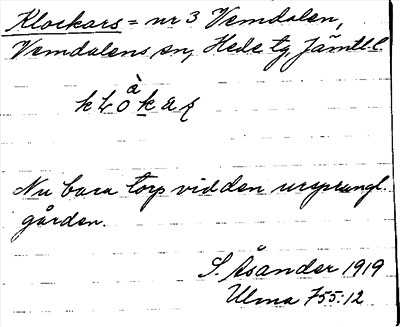 Klockars = nr 3 Vemdalen,
Vemdalens sn, Hede tg, Jämtl. l.
Nu bara torp vid den ursprungl.
gården.
S. Åsander 1919
Ulma 755:12